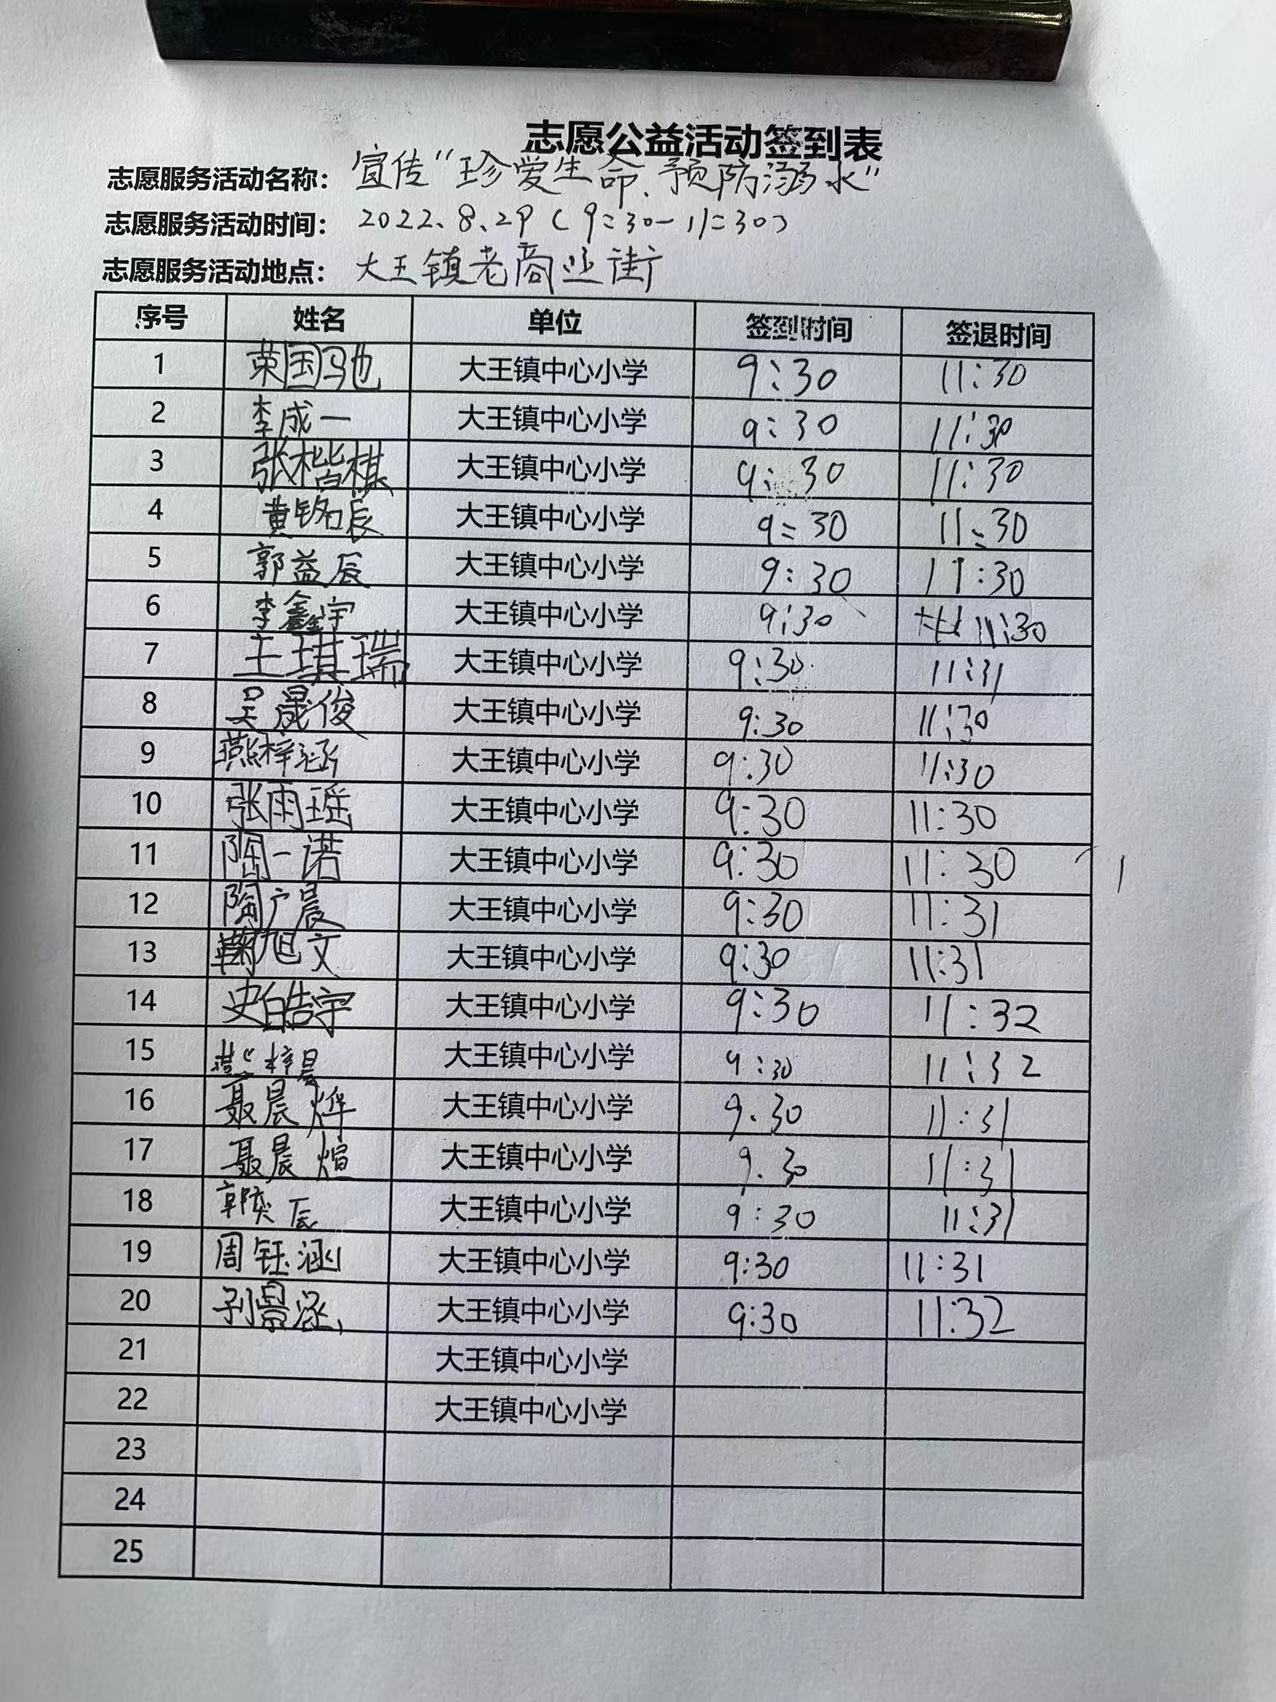 志愿公益活动签到表
志愿服务活动名称： 宣传“珍爱生命、预防溺水”
志愿服务活动时间： 2022.8.29（9:30-11:30）
志愿服务活动地点： 大王镇老商业街
序号 姓名 单位 签到时间 签退时间
1 荣国驰 大王镇中心小学 9:30 11:30
2 李成一 大王镇中心小学 9:30 11:30
3 张楷棋 大王镇中心小学 9:30 11:30
4 黄铭辰 大王镇中心小学 9:30 11:30
5 郭益辰 大王镇中心小学 9:30 11:30
6 李鑫宇 大王镇中心小学 9:30 11:30
7 王琪瑞 大王镇中心小学 9:30 11:31
8 吴晟俊 大王镇中心小学 9:30 11:30
9 燕梓涵 大王镇中心小学 9:30 11:30
10 张雨瑶 大王镇中心小学 9:30 11:30
11 陶一诺 大王镇中心小学 9:30 11:30
12 陶广晨 大王镇中心小学 9:30 11:31
13 鞠旭文 大王镇中心小学 9:30 11:31
14 史皓宇 大王镇中心小学 9:30 11:32
15 大王镇中心小学 9:30 11:32
16 聂晨烨 大王镇中心小学 9:30 11:31
17 聂晨煊 大王镇中心小学 9:30 11:31
18 郭奕辰 大王镇中心小学 9:30 11:31
19 周钰涵 大王镇中心小学 9:30 11:31
20 大王镇中心小学 9:30 11:32
21 大王镇中心小学
22 大王镇中心小学
23
24
25